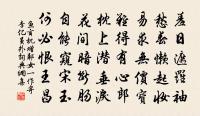 羞日遮羅袖
愁春懶起妝
易求無價寶
難得有心郎
枕上潛垂淚
花間暗斷腸
自能窺宋玉
何必恨王昌
魚玄机贈鄰女一作寄
李亿員外詞典網書